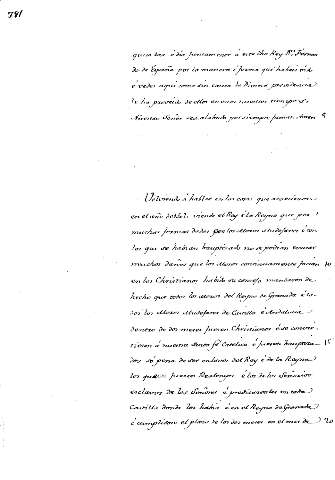 781
quistas è dio juntamente à este dho Rey Dn. Fernan
do de España por la manera i forma que habeis oid
è vedes aqui como sin causa la Divina providencia
lo ha puesto en nuestros tiempos
Nuestro Señor sea alabado por siempre jamas. Amen 5
Volviendo à hablar en las cosas que acaecieron
en el año viendo el Rey è la Reyna que por
muchas formas dadas por los Moros Mudejares è con
los que se habian bauptizado no se podian escusar
muchos daños que los Moros continuamente facian 10
en los Christianos habido su consejo mandaron de
hecho que todos los Moros del Reyno de Granada è to
dos los Moros Mudejares de Castilla è Andalucia
dentro de dos meses fuesen Christianos è se convir
tiesen à nuestra Santa fè Catolica è fuesen bauptiza 15
dos so pena de ser esclavos del Rey è de la Reyna
los que fuesen Realengos è los de los Señorios
esclavos de los Señores è predicaronles en toda
Castilla donde los habia è en el Reyno de Granada
è cumpliose el plazo de los dos meses en el mes de 20